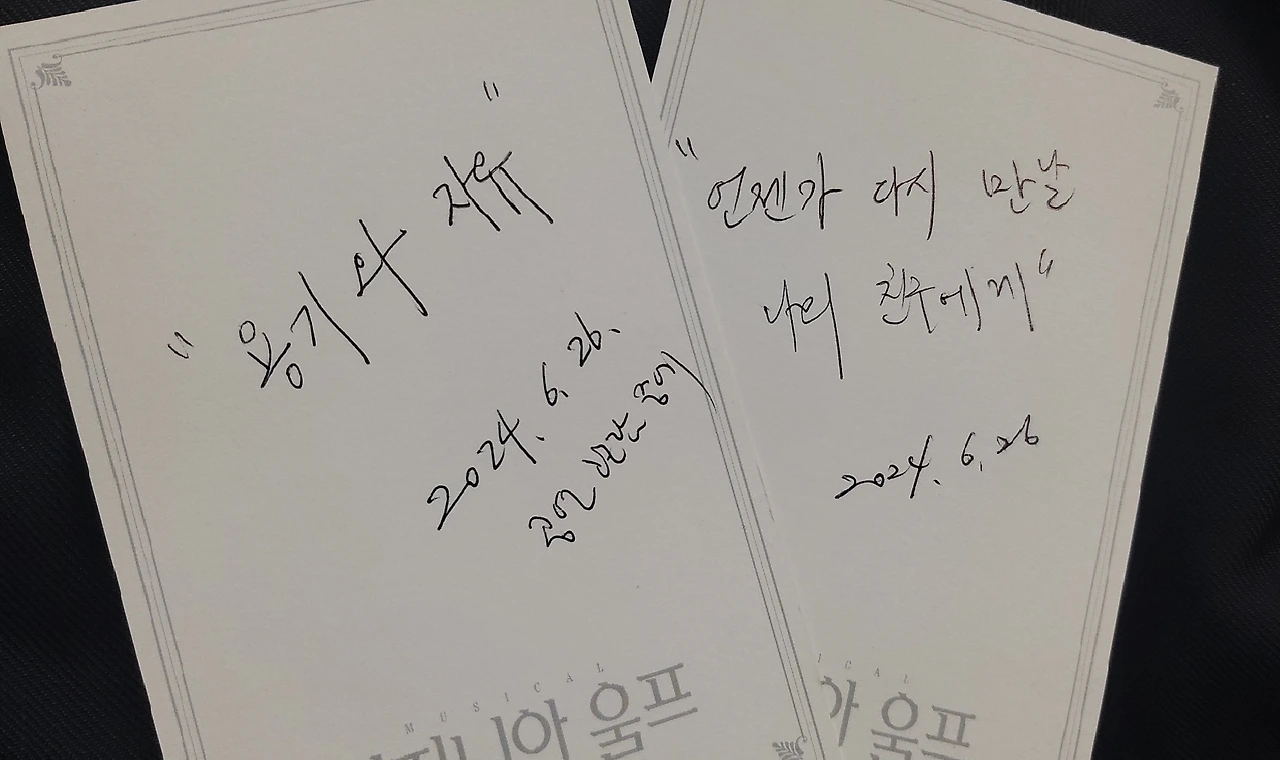 "용기와 자유"
2024. 6. 26.
공연
MUSICAL
울프
"언젠가 다시 만날
나의 친구에게"
2024. 6. 26
ICAL
아 울프